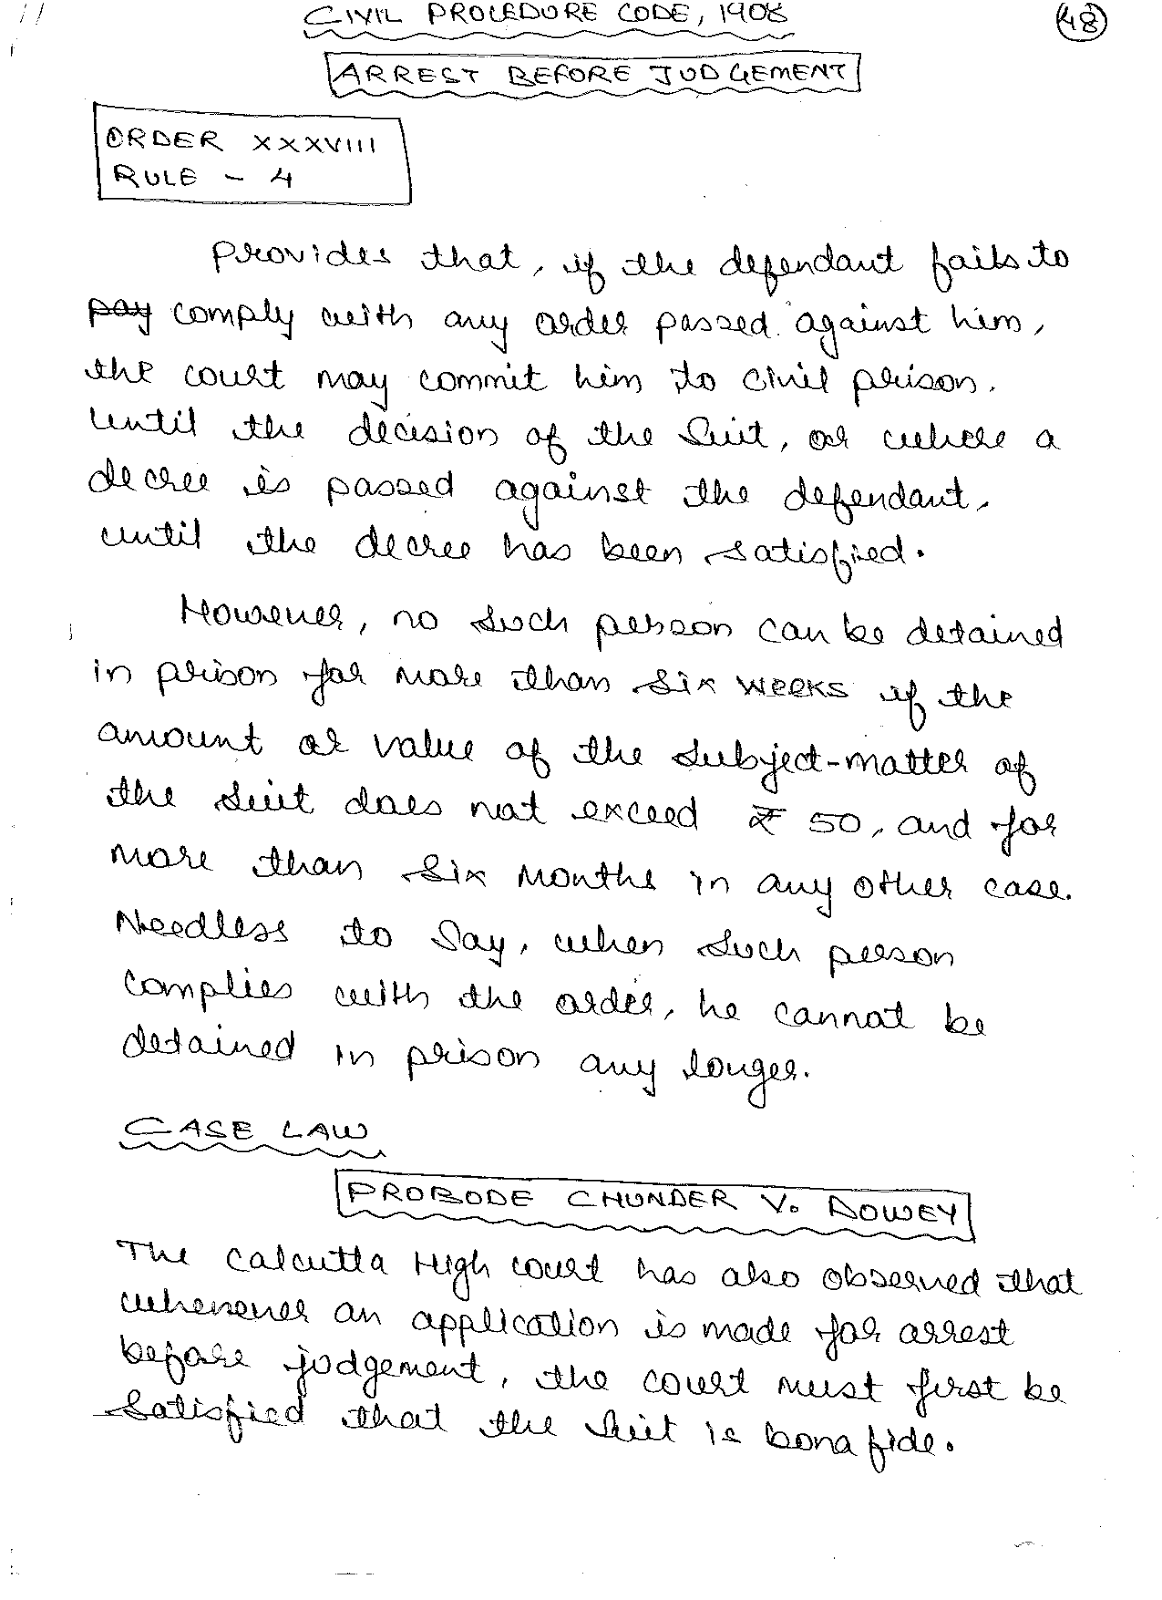 CIVIL PROCEDURE CODE, 1908
48
ARREST BEFORE JUDGEMENT
ORDER XXXVIII
RULE - 4
Provides that, if the defendant fails to
pay comply with any order passed against him,
the court may commit him to civil prison.
Until the decision of the Suit, or where a
decree is passed against the defendant,
until the decree has been satisfied.
However, no such person can be detained
in prison for more than six weeks if the
amount or value of the subject-matter of
the suit does not exceed ₹ 50, and for
more than six months in any other case.
Needless to say, when such person
complies with the order, he cannot be
detained in prison any longer.
CASE LAW
PROBODE CHUNDER V. DOWEY
The Calcutta High court has also observed that
whenever an application is made for arrest
before judgement, the court must first be
satisfied that the suit is bona fide.